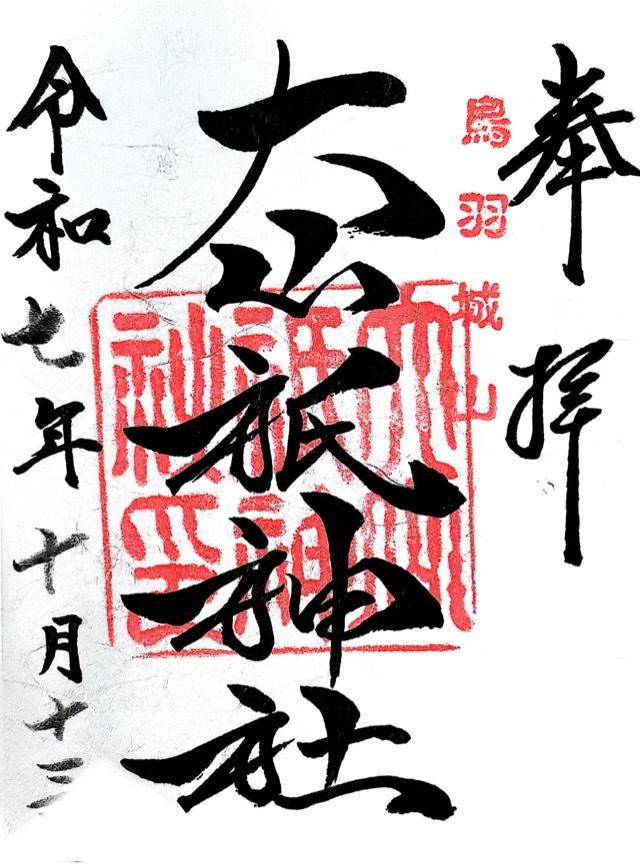 奉拝
鳥羽城山
大山祇神社
大山
祇神
社印
令和七年十月十三